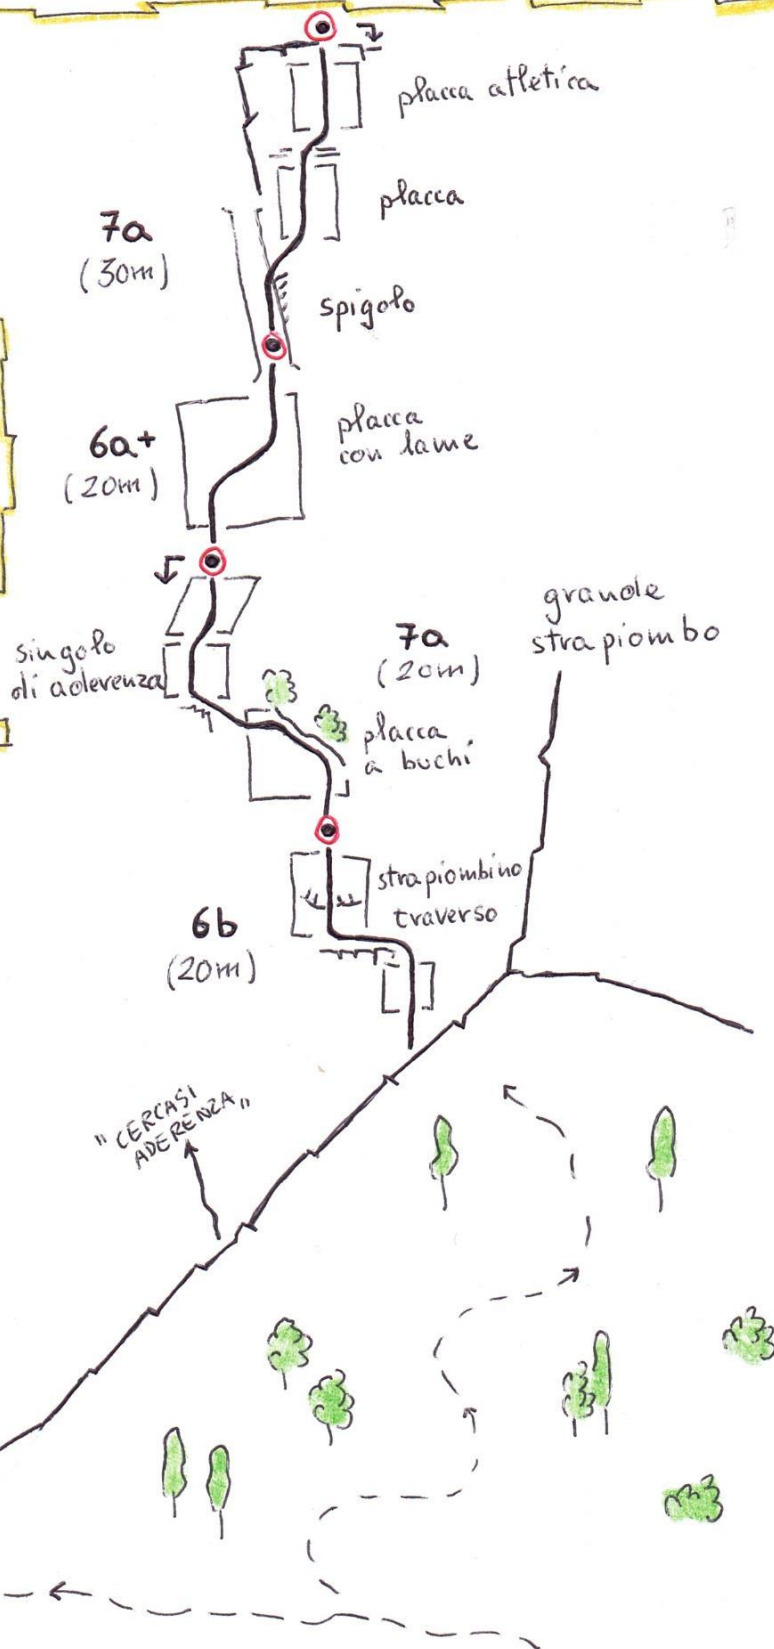 placca atletica
placca
7a
(30m)
spigolo
6a+
(20m)
placca
con lame
grande
strapiombo
singolo
di aderenza
7a
(20m)
placca
a buchi
strapiombino
traverso
6b
(20m)
"CERCASI
ADERENZA"